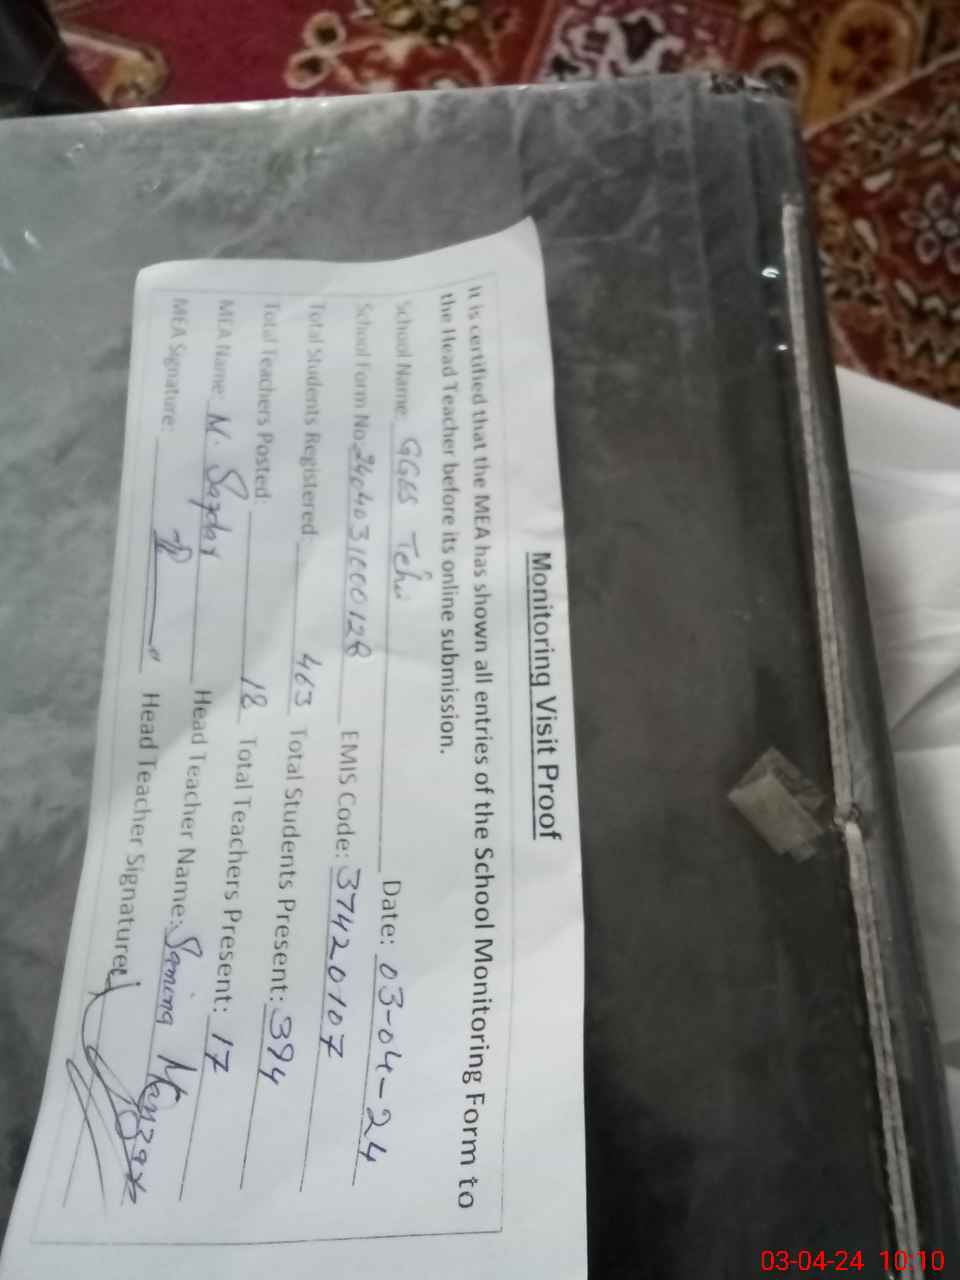 Monitoring Visit Proof
It is certified that the MEA has shown all entries of the School Monitoring Form to
the Head Teacher before its online submission.
School Name GGES Date: 03-04-24
School Form No. EMIS Code: 37420107
Total Students Registered 463 Total Students Present: 394
Total Teachers Posted: 18 Total Teachers Present: 17
MEA Name: M. Head Teacher Name:
MEA Signature: Head Teacher Signature:
03-04-24 10:10